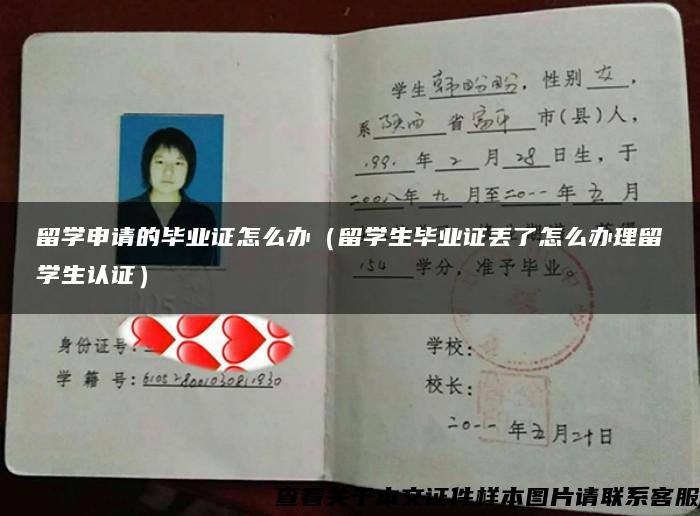 学生韩盼盼，性别女，
系陕西省富平市(县)人，
1991年2月28日生，于
二00八年九月至二0一一年五月
留学申请的毕业证怎么办（留学生毕业证丢了怎么办理留
学生认证）
154学分，准予毕业。
身份证号：
学籍号：
学校：
校长：
二0一一年五月二十日
查看关于本文证件样本图片请联系客服